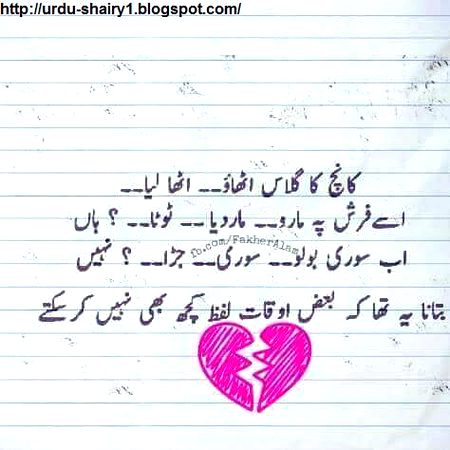 http://urdu-shairy1.blogspot.com/
کانچ کا گلاس اٹھاؤ-- اٹھا لیا--
اسے فرش پہ مارو-- مار دیا-- ٹوٹا-- ؟ ہاں
fb.com/FakherAlam
اب سوری بولو-- سوری-- جڑا-- ؟ نہیں
بتانا یہ تھا کہ بعض اوقات لفظ کچھ بھی نہیں کر سکتے